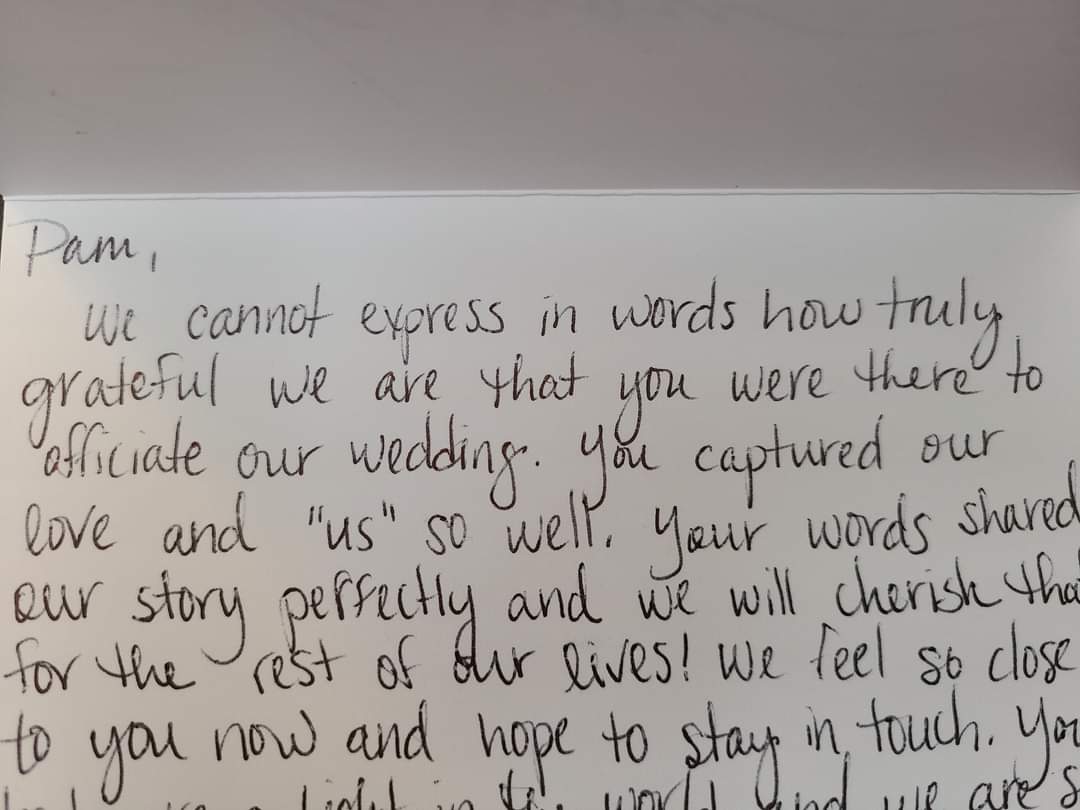 Pam,
We cannot express in words how truly
grateful we are that you were there to
officiate our wedding. You captured our
love and "us" so well. Your words shared
our story perfectly and we will cherish tha
for the rest of our lives! We feel so close
to you now and hope to stay in touch. You
light in the world and we are s